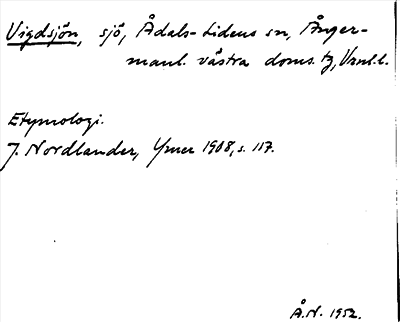 Vigdsjön, sjö, Ådals-Lidens sn, Ånger-
manl. västra doms. tg, Vnrl.l.
Etymologi.
J. Nordlander, Ymer 1908, s. 117.
Å.N. 1952.